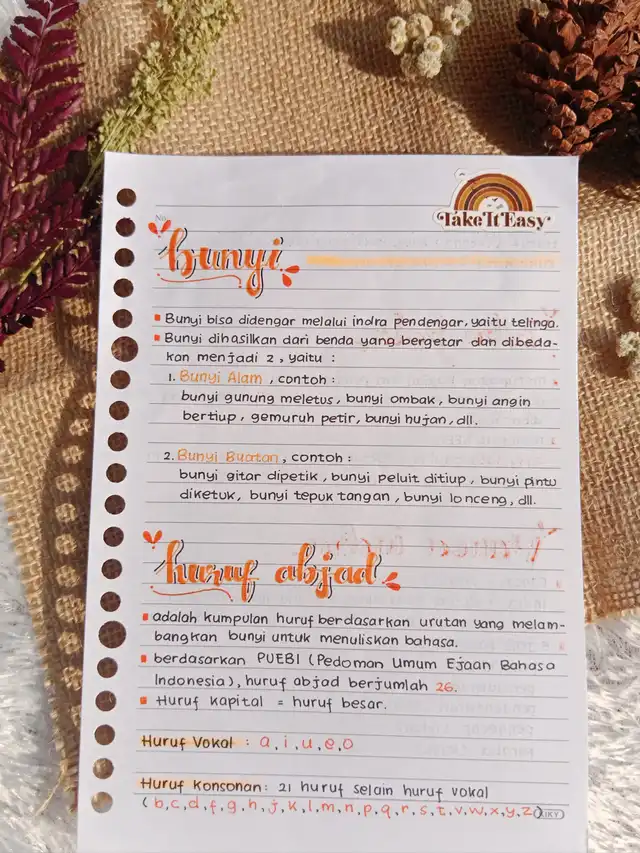 Take It Easy
No.
bunyi
Bunyi bisa didengar melalui indra pendengar, yaitu telinga.
Bunyi dihasilkan dari benda yang bergetar dan dibeda-
kan menjadi 2, yaitu :
1. Bunyi Alam, contoh :
bunyi gunung meletus, bunyi ombak, bunyi angin
bertiup, gemuruh petir, bunyi hujan, dll.
2. Bunyi Buatan, contoh :
bunyi gitar dipetik, bunyi peluit ditiup, bunyi pintu
diketuk, bunyi tepuk tangan, bunyi lonceng, dll.
huruf abjad
adalah kumpulan huruf berdasarkan urutan yang melam-
bangkan bunyi untuk menuliskan bahasa.
berdasarkan PUEBI (Pedoman Umum Ejaan Bahasa
Indonesia), huruf abjad berjumlah 26.
Huruf kapital = huruf besar.
Huruf Vokal : a, i, u, e, o
Huruf Konsonan : 21 huruf selain huruf vokal
(b, c, d, f, g, h, j, k, l, m, n, p, q, r, s, t, v, w, x, y, z)